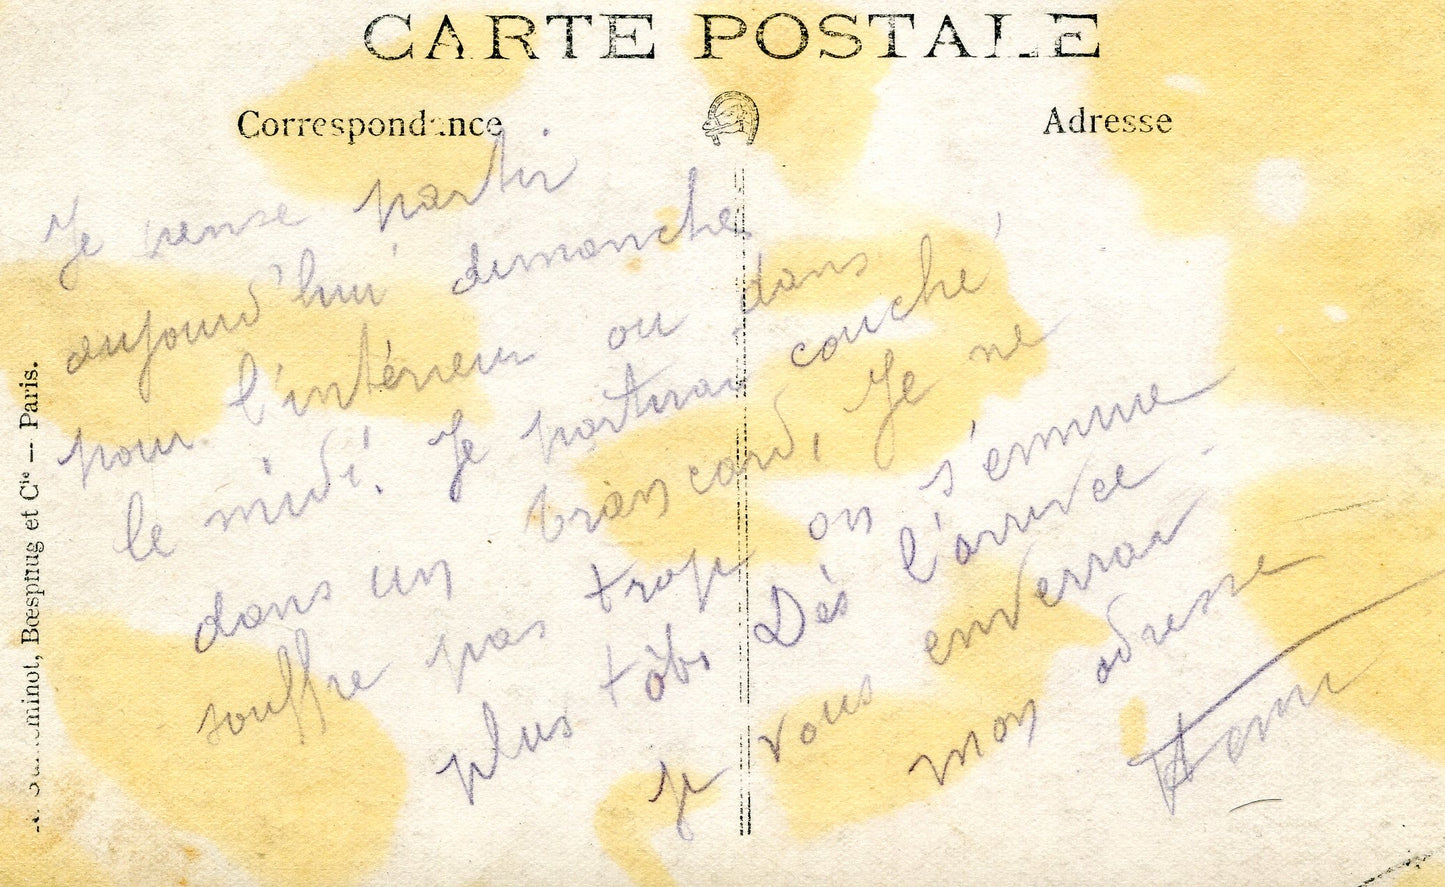 CARTE POSTALE
Correspondance
Adresse
Je pense partir
aujourd'hui dimanche
pour l'intérieur ou dans
le midi. Je partirai couché
dans un brancard, Je ne
souffre pas trop on s'ennuie
plus tôt. Dès l'arrivée
je vous enverrai
mon adresse
Henri
Guilleminot, Bœspflug et Cie — Paris.